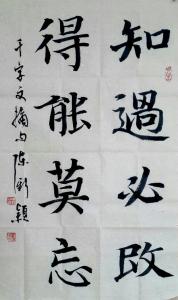 知過必改
得能莫忘
千字文摘句陈新颖